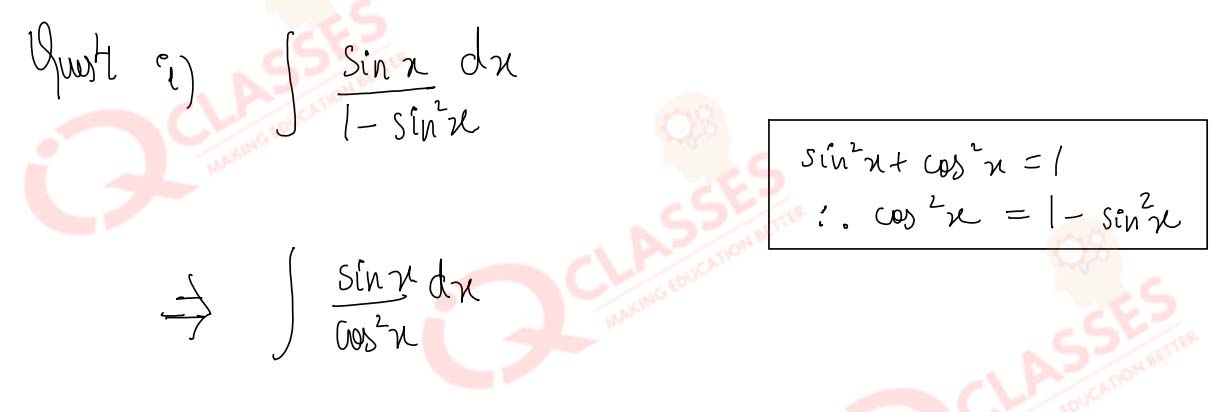 Quest i) ∫ sin x / 1 - sin²x dx
sin²x + cos²x = 1
∴ cos²x = 1 - sin²x
⇒ ∫ sin x / cos²x dx
iQ CLASSES
MAKING EDUCATION BETTER
iQ CLASSES
MAKING EDUCATION BETTER
CLASSES
EDUCATION BETTER